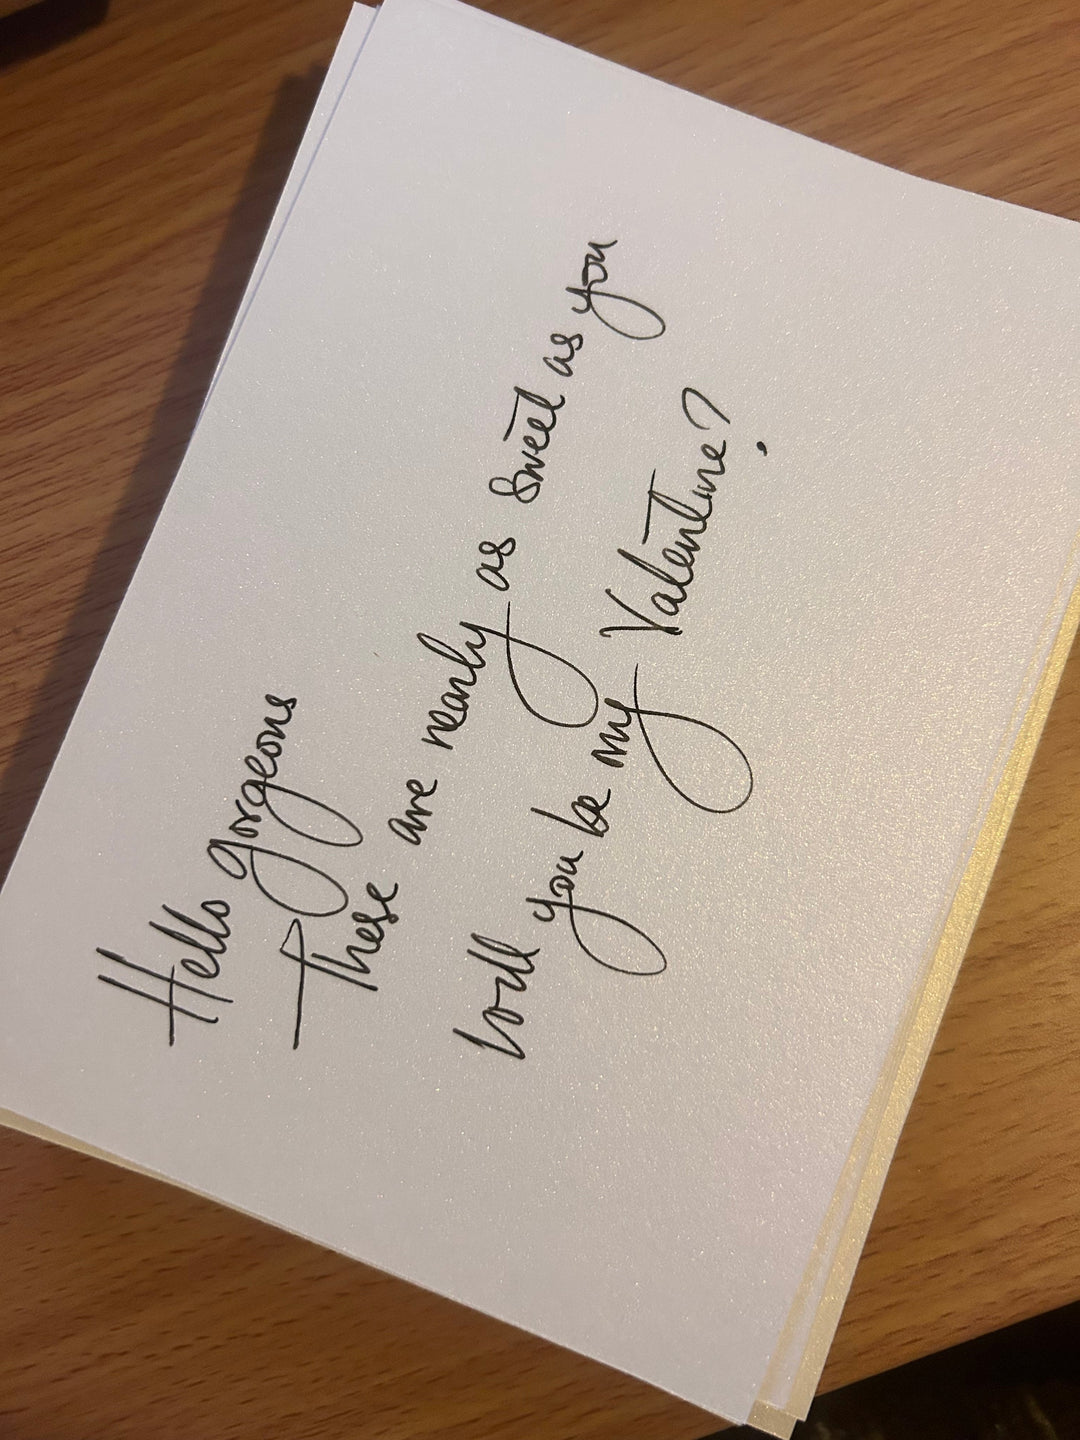 Hello gorgeous
These are nearly as sweet as you
Will you be my Valentine?